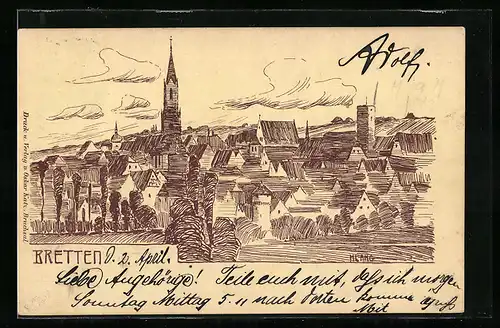 Adolf.
Druck u. Verlag v. Oskar Katz, Bruchsal.
H.LANG
BRETTEN, d. 2. April.
Liebe Angehörige! Teile euch mit, dass ich morgen
Sonntag Mittag 5. 11 nach komme
Mit Gruß